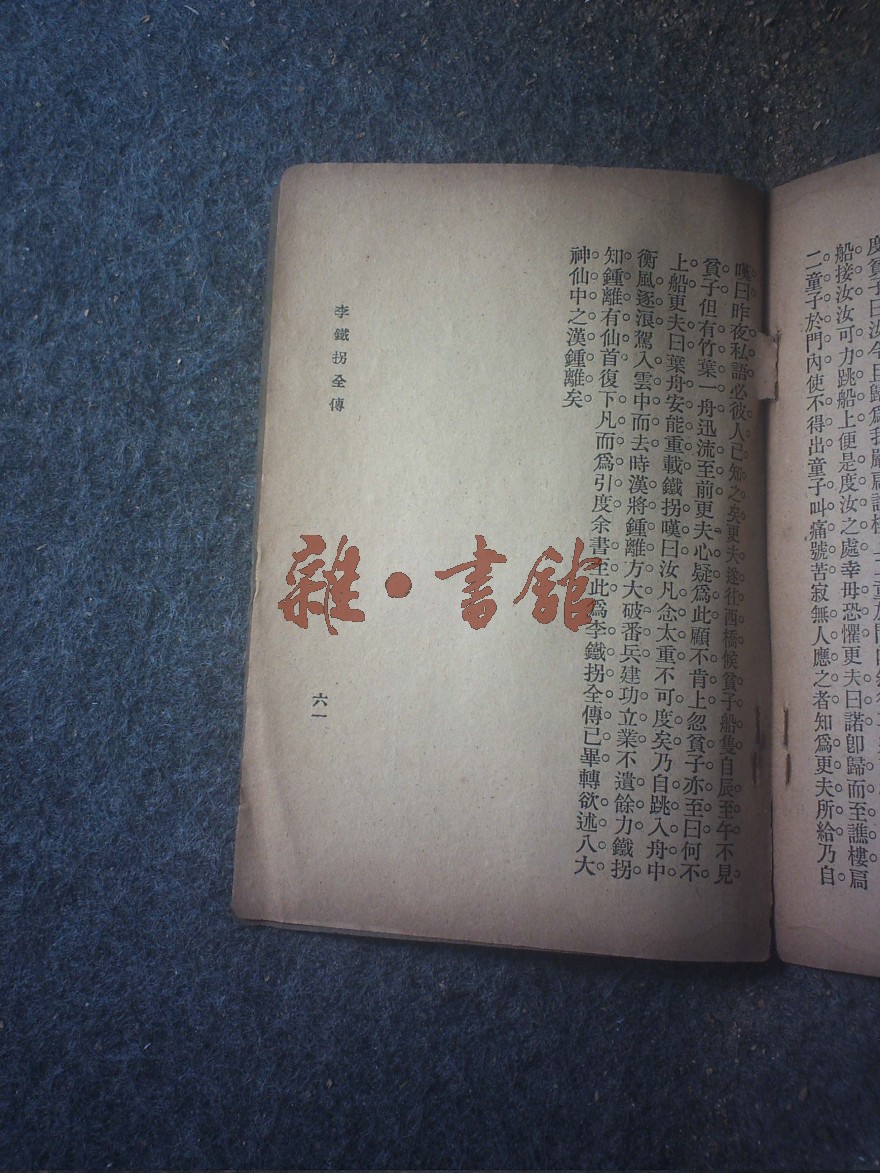 度貧子曰汝今且歸爲我
船接汝汝可力跳船上便是度汝之處幸毋恐懼更夫曰諾卽歸而至譙樓扃
二童子於門內使不得出童子叫痛號苦寂無人應之者知爲更夫所給乃自
嘆曰昨夜私語必彼人已知之矣更夫遂往西橋候貧子船隻自辰至午不見
貧子但有竹葉一舟迅流至前更夫心疑爲此顧不肯上忽貧子亦至曰何不
上船更夫曰葉舟安能重載鐵拐嘆曰汝凡念太重不可度矣乃自跳入舟中
衡風逐浪駕入雲中而去時漢將鍾離方大破番兵建功立業不遺餘力鐵拐
知鍾離有仙首復下凡而爲引度余書至此爲李鐵拐全傳已畢轉欲述八大
神仙中之漢鍾離矣
李鐵拐全傳
六一
雜·書館